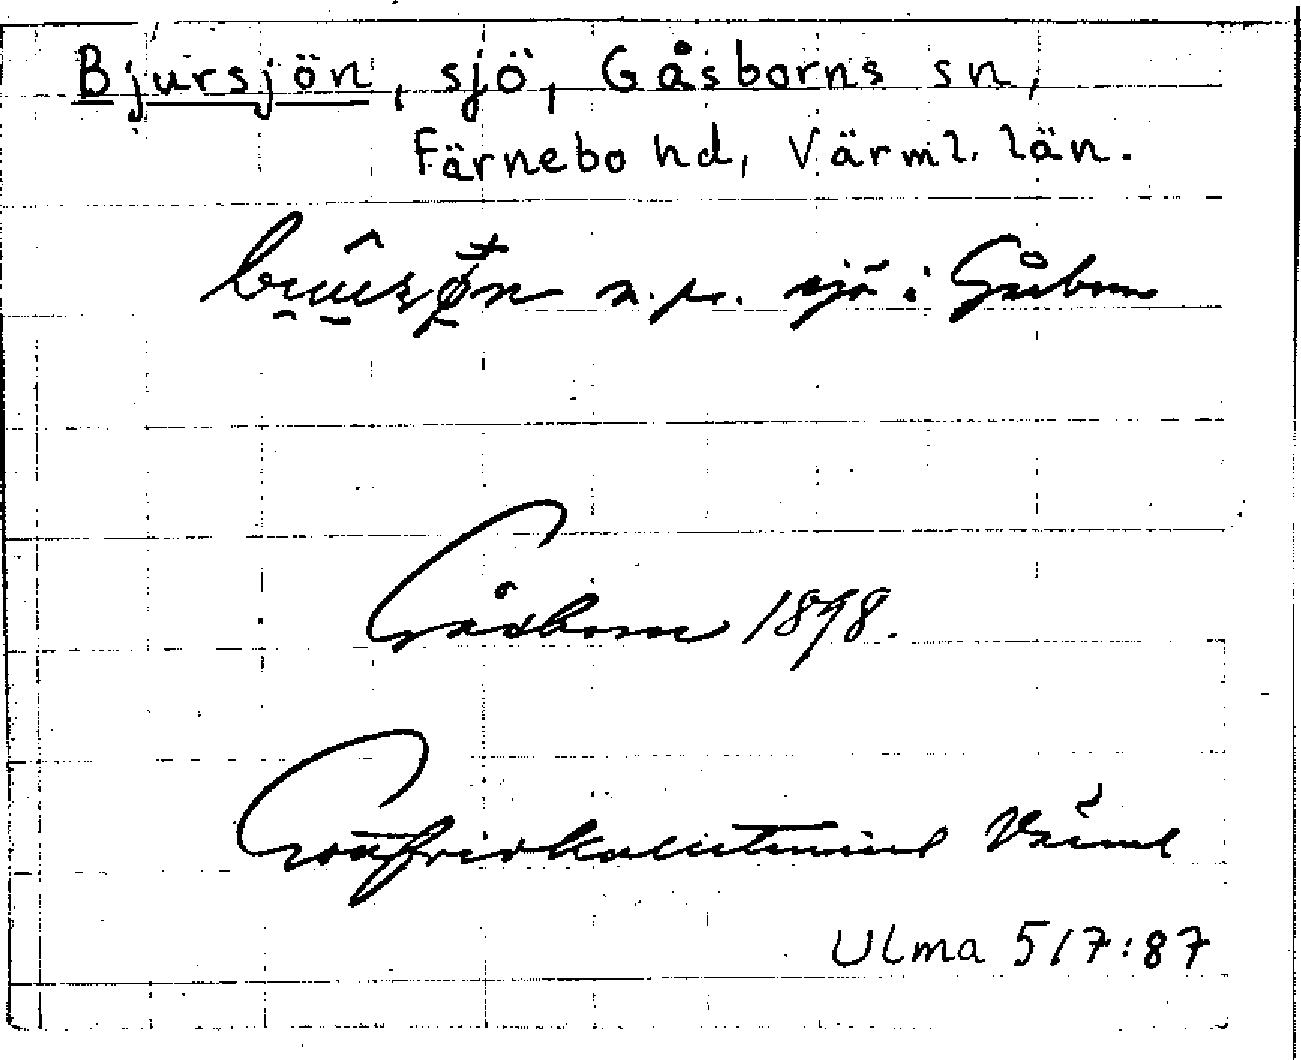 Bjursjön, sjö, Gåsborns sn,
Färnebo hd, Värml. län.
n. pr. sjö i Gåsborn
Gåsborn 1898.
Värml
Ulma 517:87